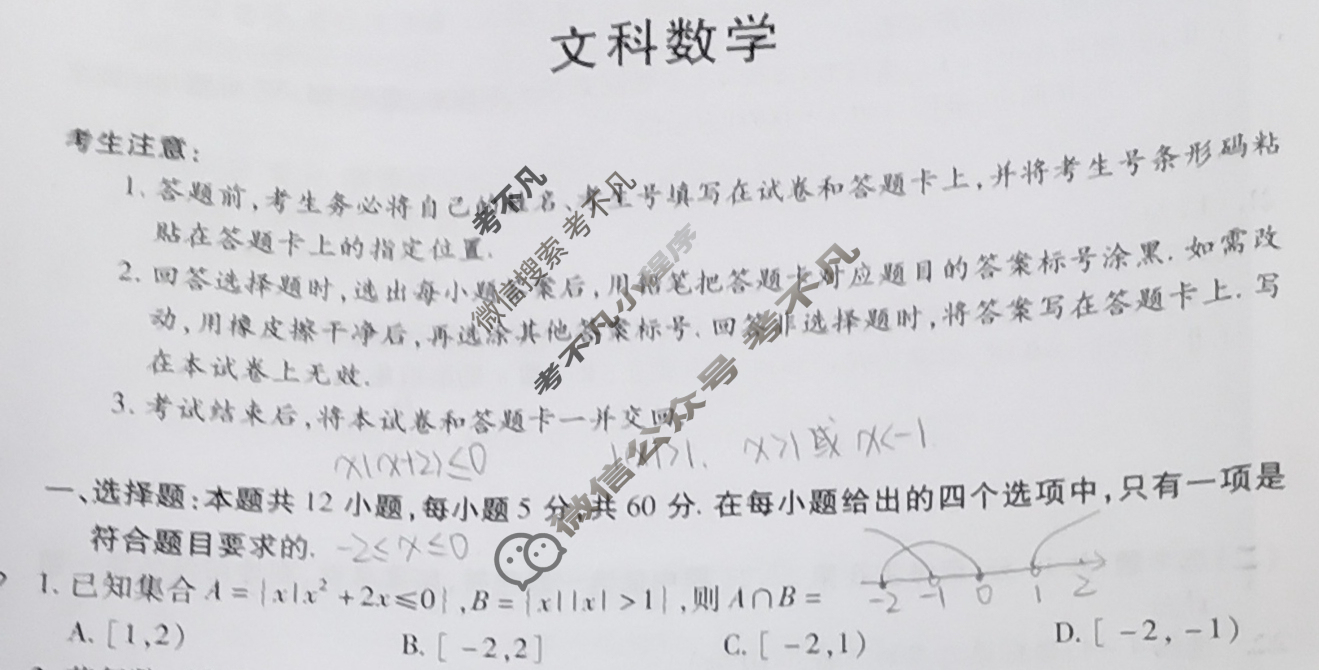 文科数学
考生注意:
1. 答题前,考生务必将自己的姓名、考生号填写在试卷和答题卡上,并将考生号条形码粘
贴在答题卡上的指定位置.
2. 回答选择题时,选出每小题答案后,用铅笔把答题卡对应题目的答案标号涂黑.如需改
动,用橡皮擦干净后,再选涂其他答案标号.回答非选择题时,将答案写在答题卡上.写
在本试卷上无效.
3. 考试结束后,将本试卷和答题卡一并交回.
x(x+2)≤0 |x|>1. x>1或x<-1.
一、选择题:本题共12小题,每小题5分,共60分.在每小题给出的四个选项中,只有一项是
符合题目要求的. -2≤x≤0
1. 已知集合A={x|x²+2x≤0},B={x||x|>1},则A∩B=
-2 -1 0 1 2
A. [1,2) B. [-2,2] C. [-2,1) D. [-2,-1)
考不凡
微信搜索 考不凡
考不凡小程序
微信公众号 考不凡